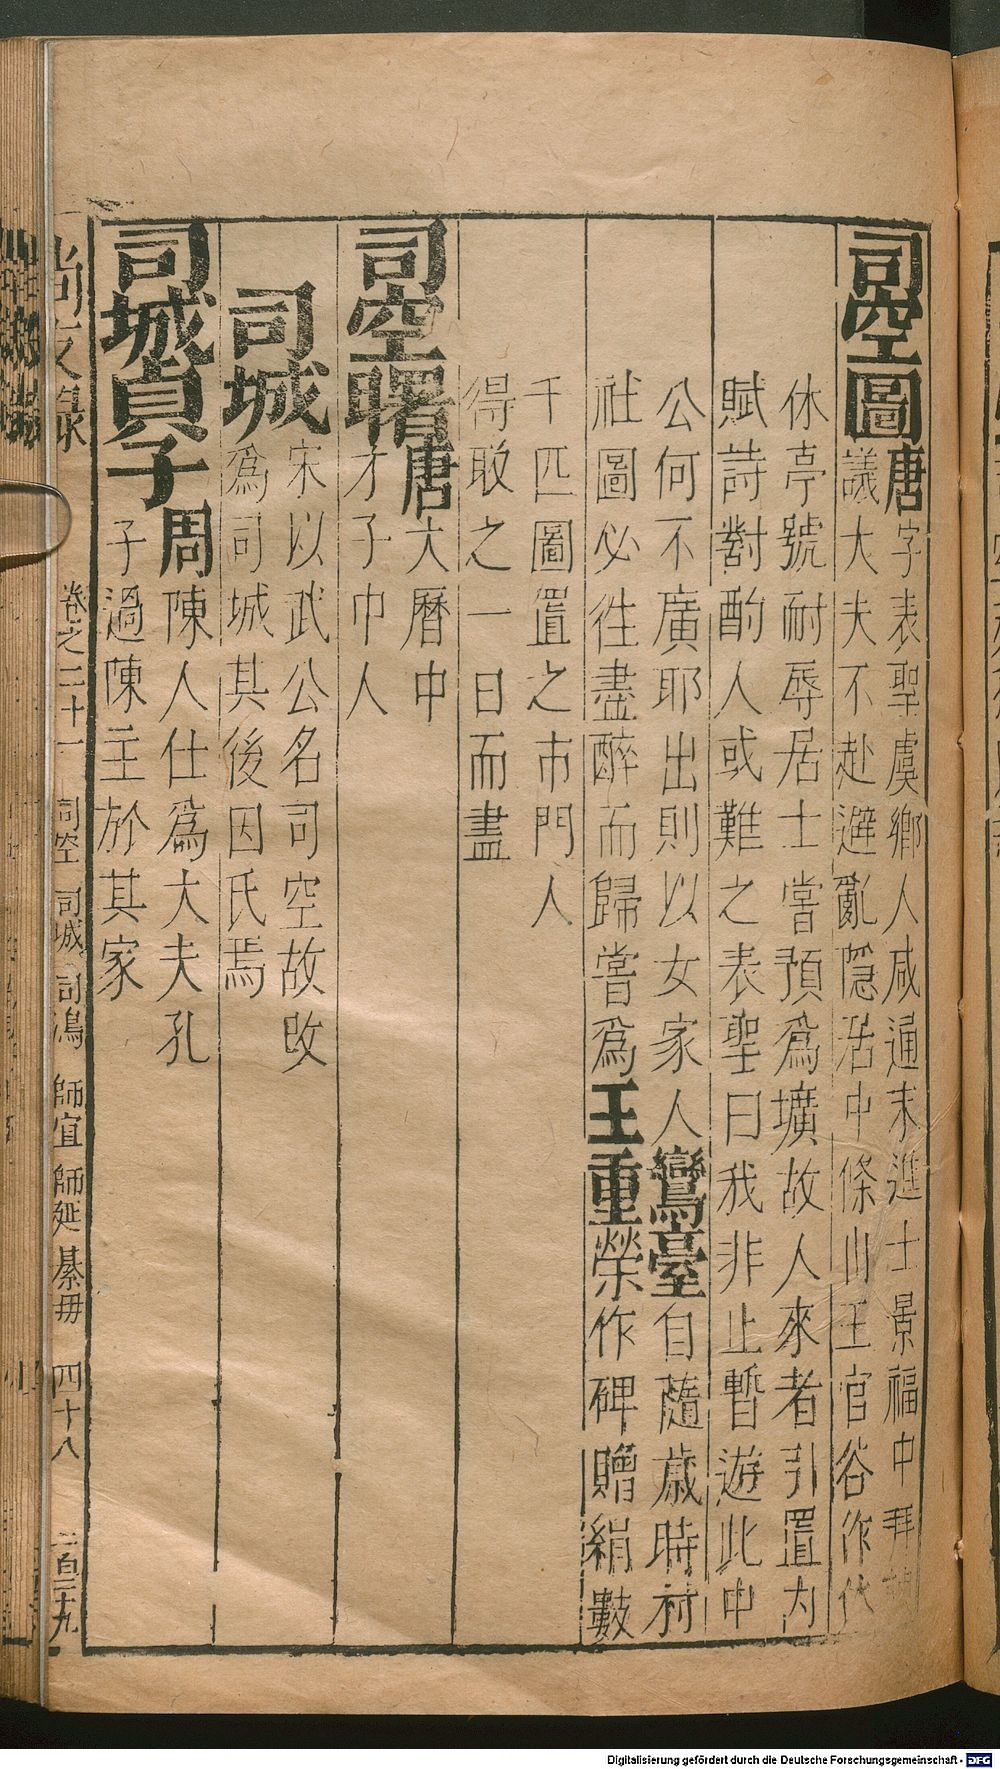 司空圖唐字表聖虞鄉人咸通末進士景福中拜
議大夫不赴避亂隱居中條山王官谷作
休亭號耐辱居士嘗預爲壙故人來者引置內
賦詩對酌人或難之表聖曰我非止暫遊此中
公何不廣耶出則以女家人鸞臺自隨歲時村
社圖必往盡醉而歸嘗爲王重榮作碑贈絹數
千匹圖置之市門人
得取之一日而盡
司空曙唐大曆中
才子巾人
司城宋以武公名司空故改
爲司城其後因氏焉
司城貞子周陳人仕爲大夫孔
子過陳主於其家
尚友錄 卷之二十一 司空 司城 司鴻 師宜 師延 綦毋 四十八 二百二十九
Digitalisierung gefördert durch die Deutsche Forschungsgemeinschaft - DFG